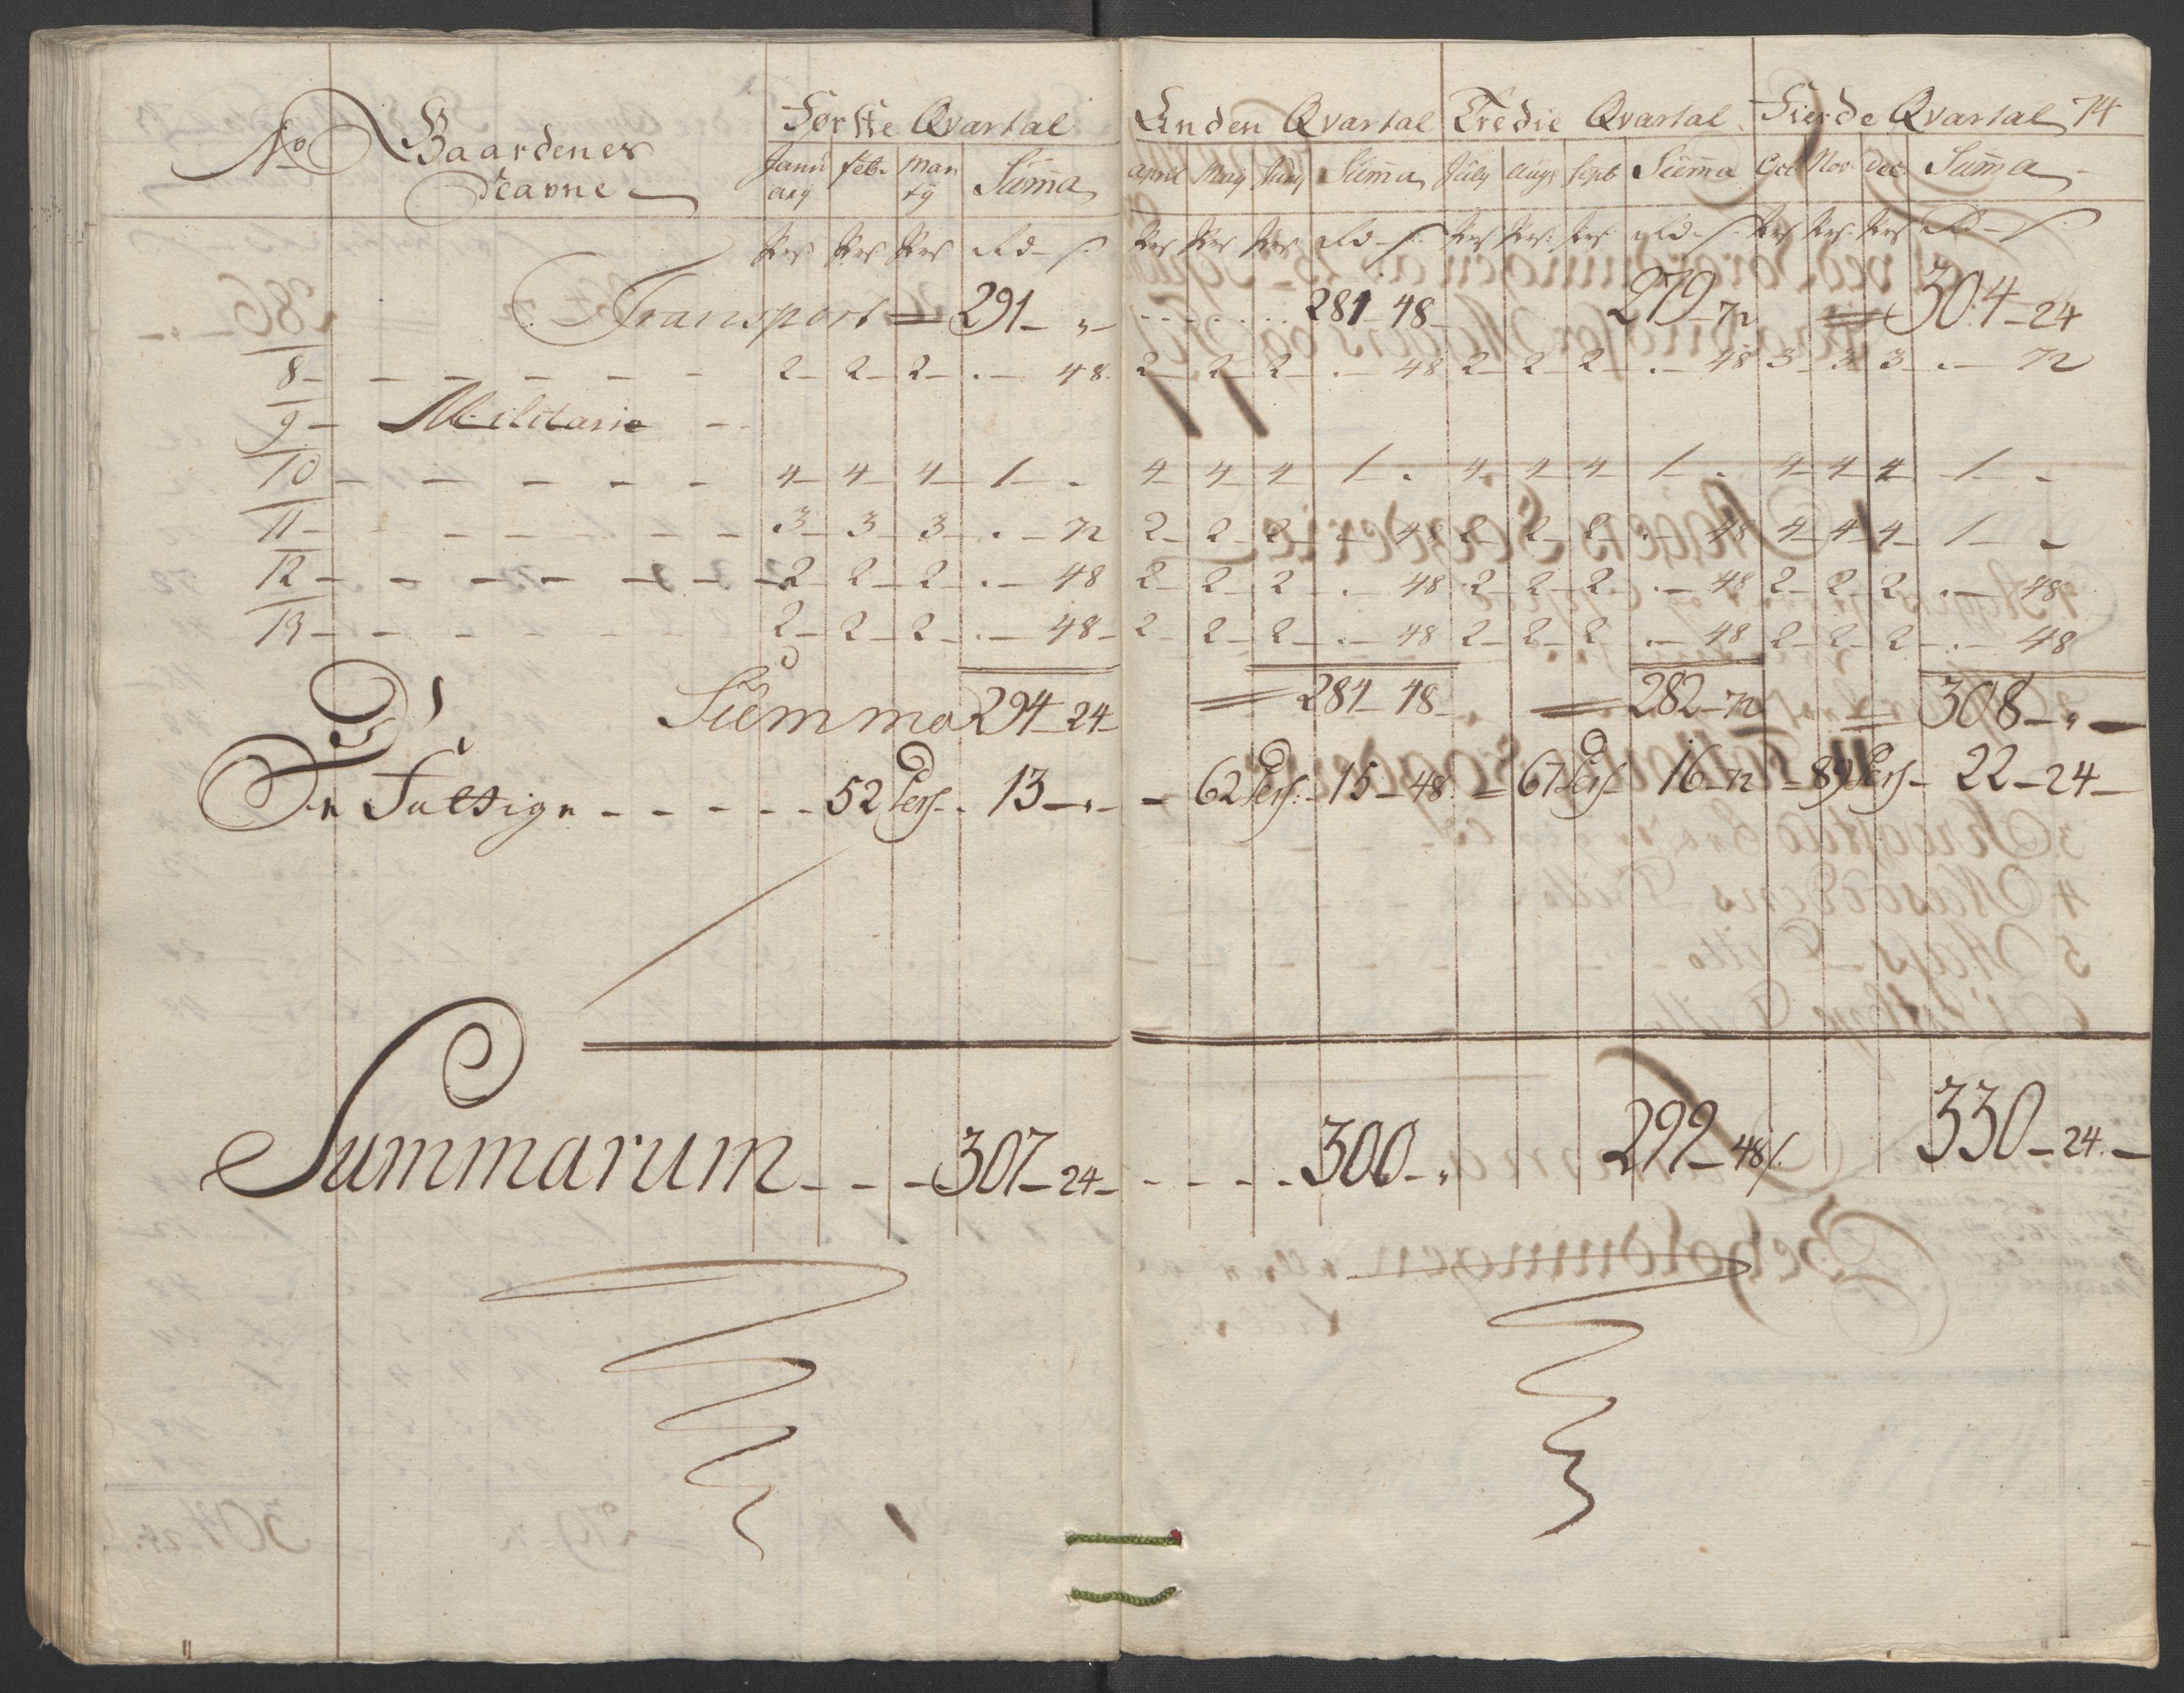 No Gaardenes Første Qvartal Anden Qvartal Tredie Qvartal Fierde Qvartal 74
Navne Janu ary feb. Mar ty Summa April May Juny Summa July Augs Sept Summa Oct Nov Dec Summa
Prs. Prs Prs Rd - s. Prs Prs Prs Rd - s. Prs Prs. Prs Rd - s. Prs Prs. Prs Rd - s.
Transport = 291 - " - 281 - 48 - 279 - 72 = 304 - 24
8 - 2 - 2 - 2 - . - 48. 2 - 2 - 2 - . - 48 2 - 2 - 2 - . - 48 3 - 3 3 - . - 72
9 - Militarie -
10 - 4 - 4 - 4 - 1 - . 4 - 4 - 4 - 1 - . 4 - 4 - 4 - 1 - . 4 - 4 - 4 - 1 - -
11 - 3 - 3 - 3 - . - 72 2 - 2 - 2 - . - 48 2 - 2 - 2 - . - 48 4 - 4 - 4 - 1 - -
12 - 2 - 2 - 2 - . - 48 2 - 2 - 2 - . - 48 2 - 2 - 2 - . - 48 2 - 2 - 2 - . - 48
13 - 2 - 2 - 2 - . - 48 - 2 - 2 - 2 - . - 48 2 - 2 - 2 - . - 48 2 - 2 - 2 - . - 48
Summa 294 - 24 - = 284 - 48 - = 282 - 72 = 308 - " -
De Fattige - - - - - 52 Pers. 13 - " - - 62 Pers: - 15 - 48. = 67 Pers - 16 - 72 - 89 Pers - 22 - 24 -
Summarum - - - 307 - 24 - - - - - 300 - " 299 - 48 s. 330 - 24. -